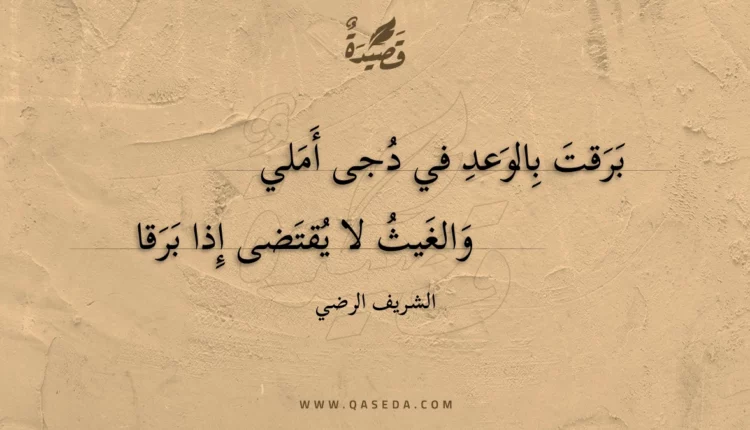 قَصِيدَةٌ
بَرَقتَ بِالوَعدِ في دُجى أَمَلي
وَالغَيثُ لا يُقتَضى إِذا بَرَقا
الشريف الرضي
WWW.QASEDA.COM